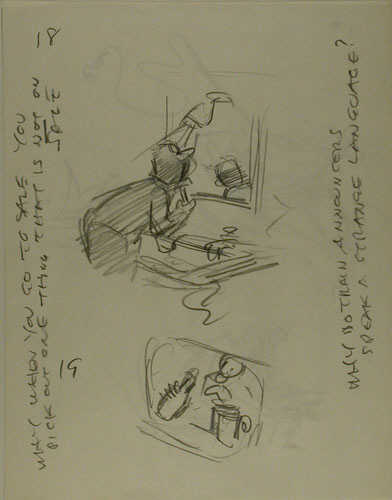 18
WHY WHEN YOU GO TO SALE YOU
PICK OUT ONE THING THAT IS NOT ON
SALE
19
WHY DO TRAIN ANNOUNCERS
SPEAK A STRANGE LANGUAGE?